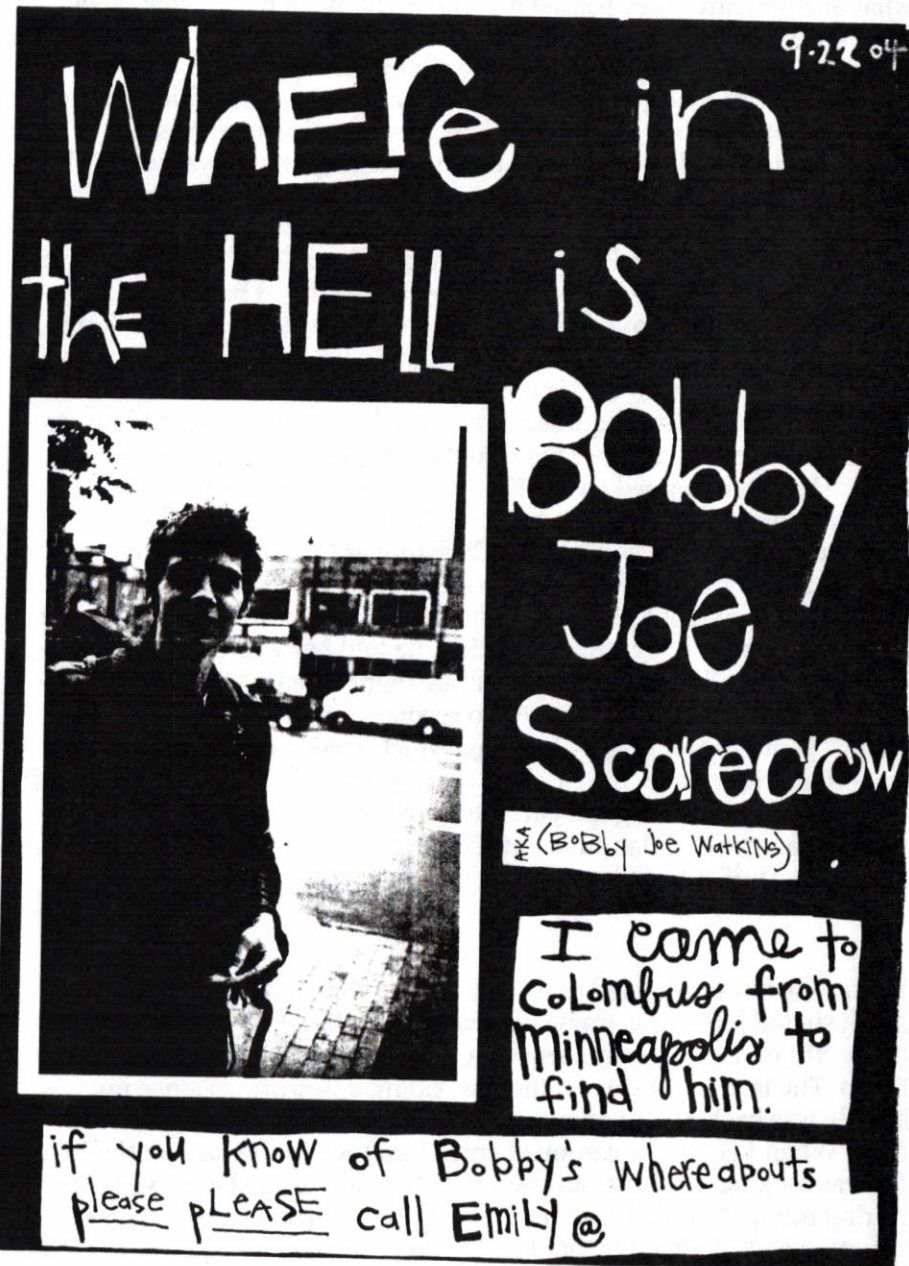 9.22 04
WhEre in
the HEll is
BObby
Joe
Scarecrow
AKA (BoBby Joe WatkiNs)
I came to
CoLombus from
Minneapolis to
find him.
if you know of Bobby's whereabouts
please pLEASE call EmiLY @